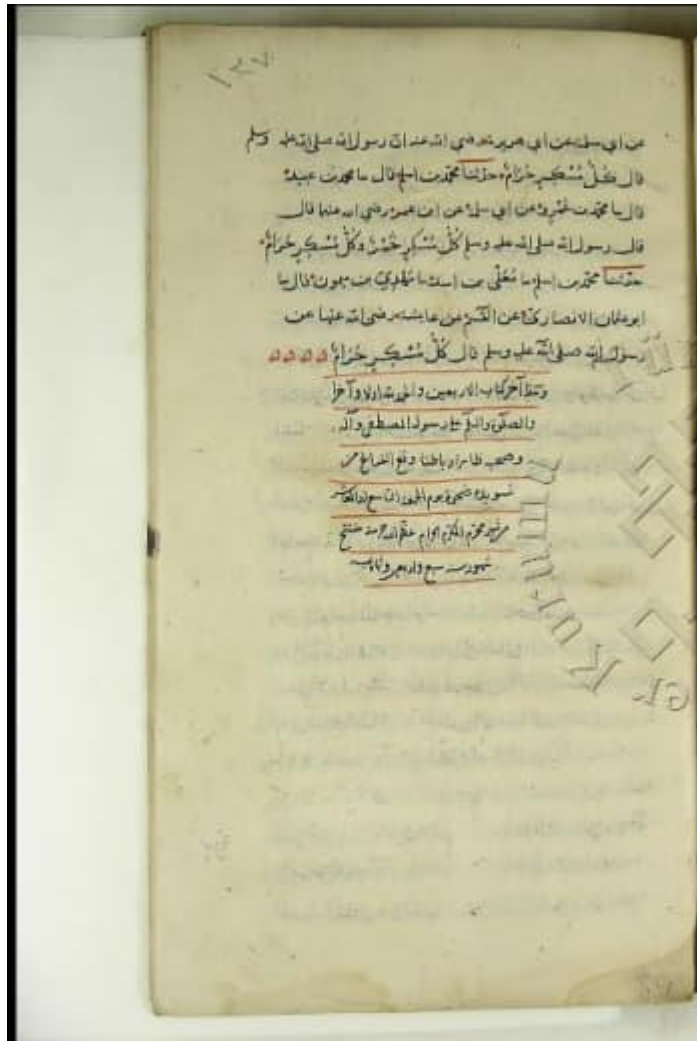 عن ابي سلمة عن ابي هريرة رضي الله عنه ان رسول الله صلى الله عليه وسلم
قال كُلُّ مُسْكِرٍ حَرَامٌ حدثنا محمد بن اسلم قال ما محمد بن عبيد
قال ما محمد بن عمرو عن ابي سلمة عن ابن عمر رضي الله عنهما قال
قال رسول الله صلى الله عليه وسلم كُلُّ مُسْكِرٍ خَمْرٌ وكُلُّ مُسْكِرٍ حَرَامٌ
حدثنا محمد بن اسلم ما مُعَلَّى بن اسد ما مَهْدِيّ بن ميمون قال ما
ابو عثمان الانصاري عن القسم عن عايشة رضي الله عنها عن
رسول الله صلى الله عليه وسلم قال كُلُّ مُسْكِرٍ حَرَامٌ
آخر كتاب الاربعين والحمد لله اولا وآخرا
والصلوة والسلم على رسوله المصطفى وآله
وصحبه ظاهرا وباطنا وقع الفراغ من
تسويده ضحوة يوم التاسع
من شهر محرم المكرم الحرام
شهور سنة سبع واربعين